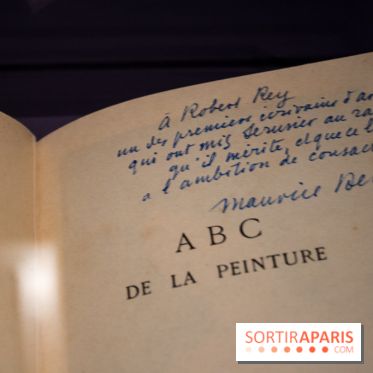 À Robert Rey
un des premiers écrivains d'ar
qui ont mis Serusier au ra
qu'il mérite, et que ce l
a l'ambition de consac
Maurice De
ABC
DE LA PEINTURE
SORTIRAPARIS
.COM